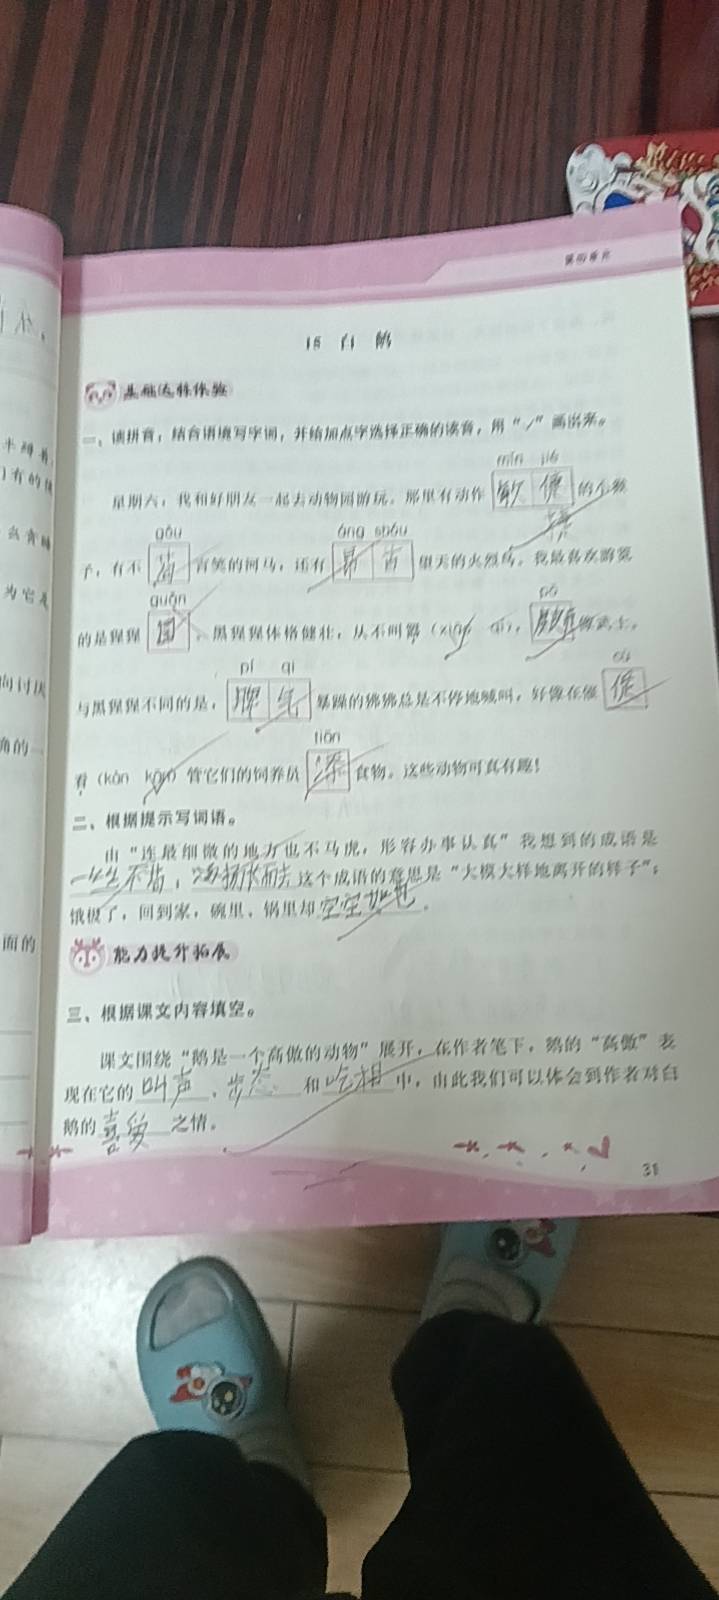 第四单元
15 白 鹅
基础达标体验
一、读拼音，结合语境写字词，并给加点字选择正确的读音，用“/”画出来。
mǐn jié
星期六，我和好朋友一起去动物园游玩。那里有动作 敏 的小猴
gǒu áng shǒu
子，有不 苟 言笑的河马，还有 昂 首 望天的火烈鸟。我最喜欢游览
quān
的是猩猩
黑猩猩体格健壮，从不叫嚣（xiāo
pí qi
与黑猩猩不同的是，脾 气 暴躁的狒狒总是不停地喊叫，好像在催 促
cù
看（kàn kān）管它们的饲养员 添 食物。这些动物可真有趣！
二、根据提示写词语。
由“连最细微的地方也不马虎，形容办事认真”我想到的成语是
一丝不苟；扬长而去这个成语的意思是“大模大样地离开的样子”；
饿极了，回到家，碗里、锅里却空空如也。
能力提升拓展
三、根据课文内容填空。
课文围绕“鹅是一个高傲的动物”展开，在作者笔下，鹅的“高傲”表
现在它的叫声、步态和吃相中，由此我们可以体会到作者对白
鹅的喜爱之情。